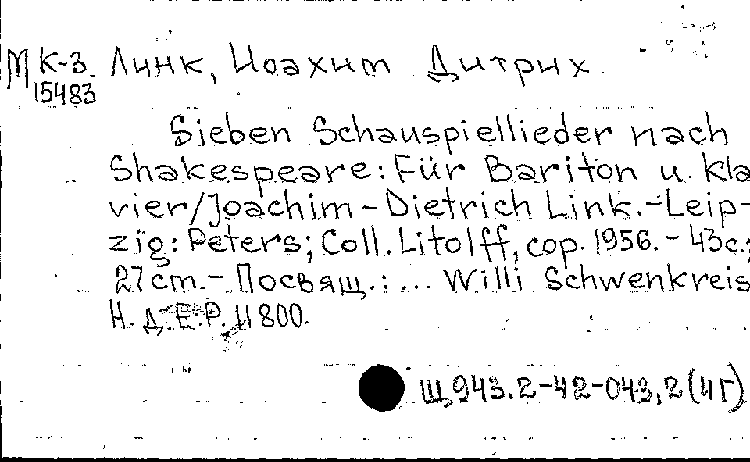 М К-3 Линк, Иоахим Дитрих
15483
Sieben Schauspiellieder nach
Shakespeare: Für Bariton u. Kla
vier/Joachim-Dietrich Link.-Leip-
zig: Peters; Coll. Litolff, cop. 1956.- 43 с.;
27 cm.- Посвящ.: ... Willi Schwenkreis
Н. д. Е.Р. 11800.
Щ943.2-42-043,2(4Г)